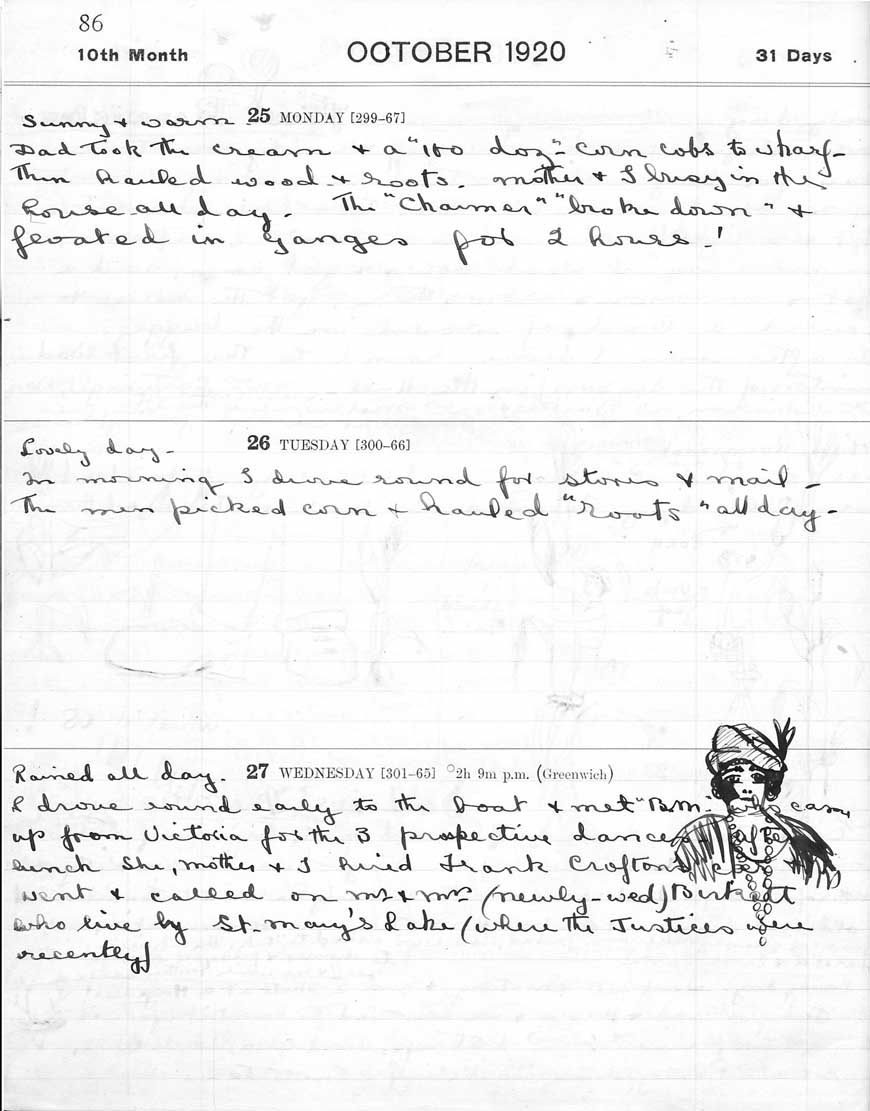 86
10th Month OCTOBER 1920 31 Days
Sunny & warm 25 MONDAY [299–67]
Dad took the cream & a "100 doz" – corn cobs to wharf –
Then hauled wood & roots. Mother & I busy in the
house all day. The "Charmer" "broke down" &
floated in Ganges for 2 hours!
Lovely day – 26 TUESDAY [300–66]
In morning I drove round for stores & mail –
The men picked corn & hauled "roots" all day –
Rained all day. 27 WEDNESDAY [301–65] ○2h 9m p.m. (Greenwich)
I drove round early to the boat & met "B.M." who came
up from Victoria for the 3 prospective dances. After
lunch she, mother & I hired Frank Crofton's car &
went & called on Mr & Mrs (newly-wed) Birkett
who live by St. Mary's Lake (where the Justices were
recently)